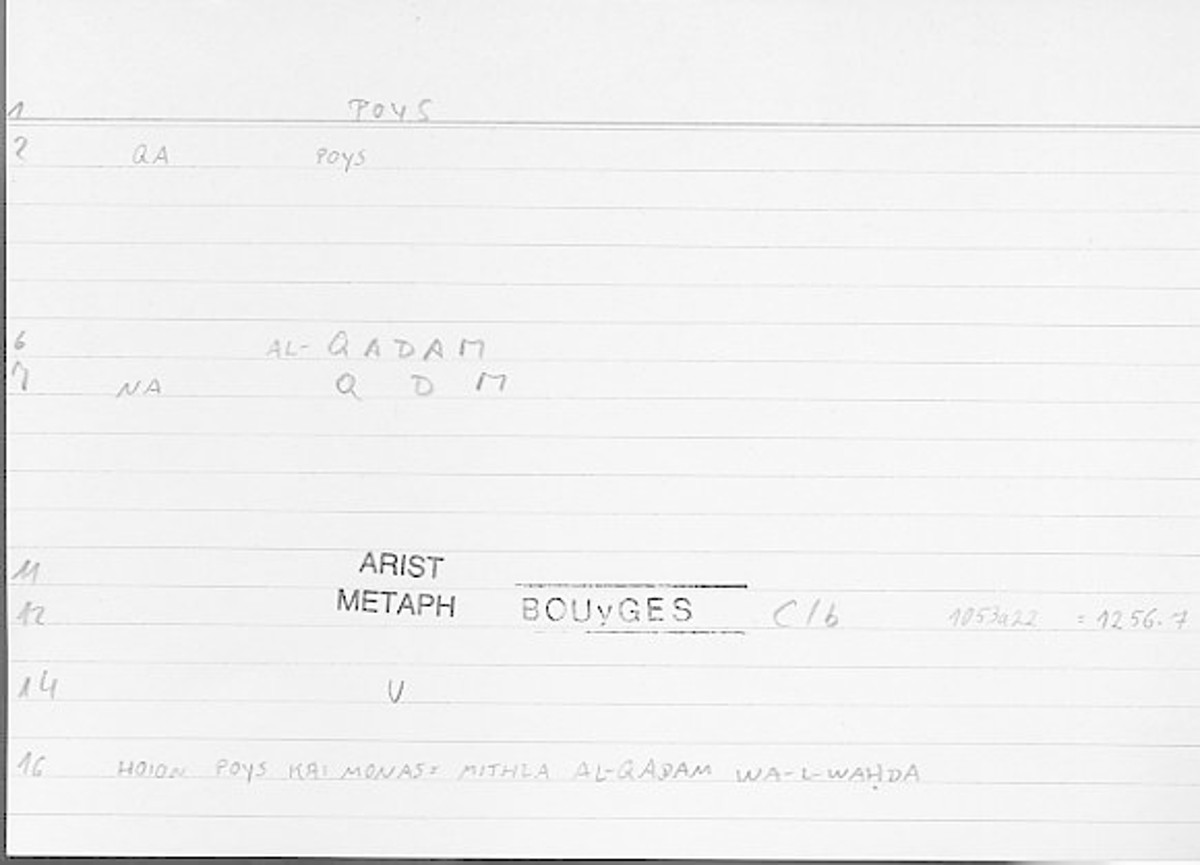 1 POYS
2 QA POYS
6 AL-QADAM
7 NA Q D M
11 ARIST
12 METAPH BOUyGES C/b 1053a22 = 1256.7
14 V
16 HOION POYS KAI MONAS= MITHLA AL-QADAM WA-L-WAḤDA